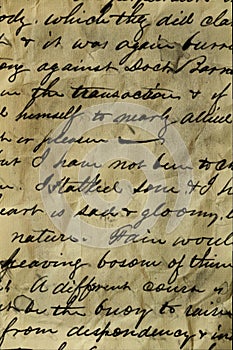 ody, which they did clai
t & it was again burn
ony against Doct. Barn
in the transaction & if
d himself to nearly allied
is or pleasure
but I have not been to ch
n. I stalled some & I h
eart is sad & gloomy, b
nature. Fain woul
heaving bosom of thine
t A different course is
t be the buoy to raise
from dispondency & in